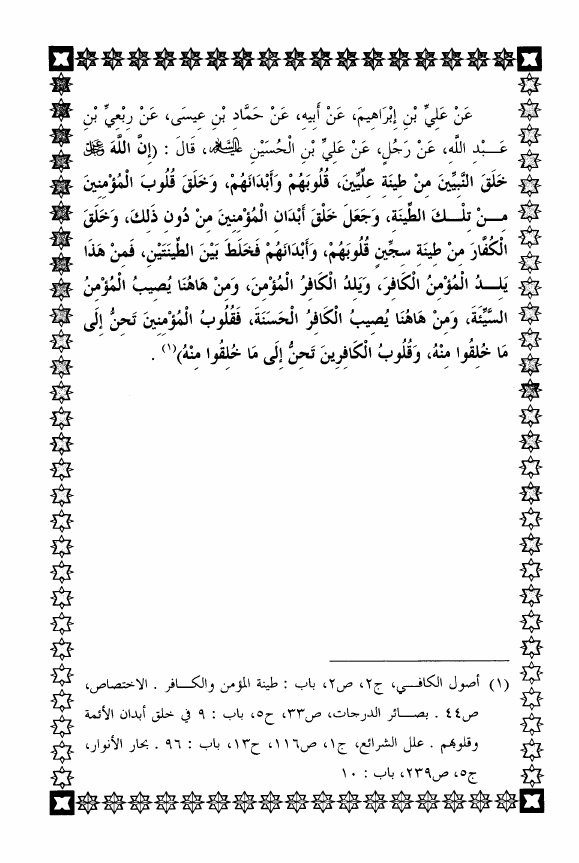 عَنْ عَلِيِّ بْنِ إِبْرَاهِيمَ، عَنْ أَبِيهِ، عَنْ حَمَّادِ بْنِ عِيسَى، عَنْ رِبْعِيِّ بْنِ
عَـــبْدِ اللَّهِ، عَنْ رَجُلٍ، عَنْ عَلِيِّ بْنِ الْحُسَيْنِ عليه السلام، قَالَ : (إِنَّ اللَّهَ عز وجل
خَلَقَ النَّبِيِّينَ مِنْ طِينَةِ عِلِّيِّينَ، قُلُوبَهُمْ وَأَبْدَانَهُمْ، وَخَلَقَ قُلُوبَ الْمُؤْمِنِينَ
مِـــنْ تِلْـــكَ الطِّينَةِ، وَجَعَلَ خَلْقَ أَبْدَانِ الْمُؤْمِنِينَ مِنْ دُونِ ذَلِكَ، وَخَلَقَ
الْكُفَّارَ مِنْ طِينَةِ سِجِّينٍ قُلُوبَهُمْ، وَأَبْدَانَهُمْ فَخَلَطَ بَيْنَ الطِّينَتَيْنِ، فَمِنْ هَذَا
يَلِـــدُ الْمُؤْمِنُ الْكَافِرَ، وَيَلِدُ الْكَافِرُ الْمُؤْمِنَ، وَمِنْ هَاهُنَا يُصِيبُ الْمُؤْمِنُ
السَّيِّئَةَ، وَمِنْ هَاهُنَا يُصِيبُ الْكَافِرُ الْحَسَنَةَ، فَقُلُوبُ الْمُؤْمِنِينَ تَحِنُّ إِلَى
مَا خُلِقُوا مِنْهُ، وَقُلُوبُ الْكَافِرِينَ تَحِنُّ إِلَى مَا خُلِقُوا مِنْهُ)(١) .
(١) أصول الكافـــي، ج٢، ص٢، باب : طينة المؤمن والكـــافر . الاختصاص،
ص٤٤ . بصـــائر الدرجات، ص٣٣، ح٥، باب : ٩ في خلق أبدان الأئمة
وقلوبهم . علل الشرائع، ج١، ص١١٦، ح١٣، باب : ٩٦ . بحار الأنوار،
ج٥، ص٢٣٩، باب : ١٠